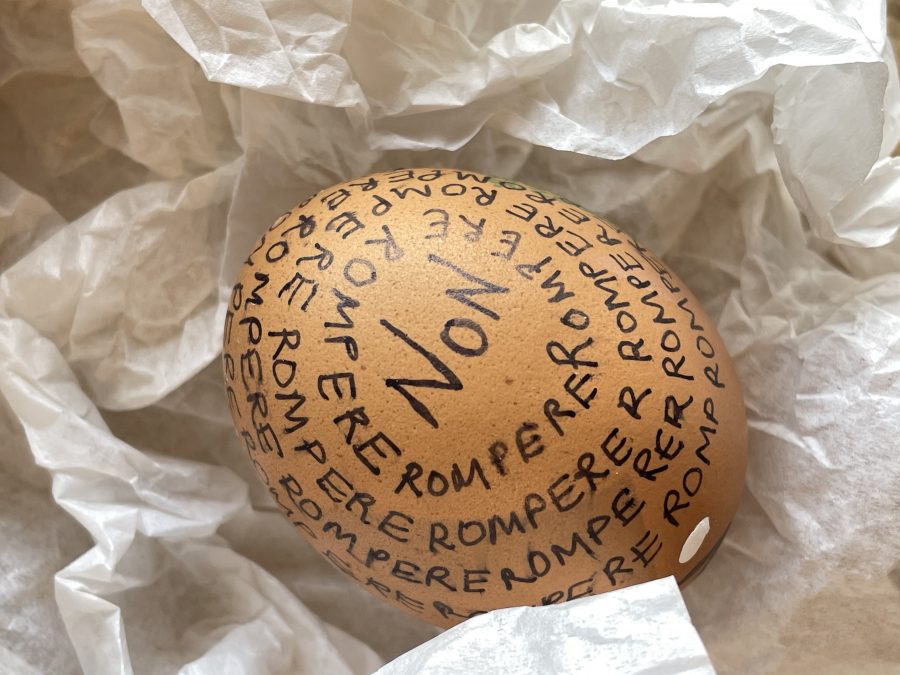 NON
ROMPERE ROMPERE ROMPERE
ROMPERE ROMPERE ROMPERE ROMPERE
ROMPERE ROMPERE ROMPERE ROMPERE
ROMPERE ROMP